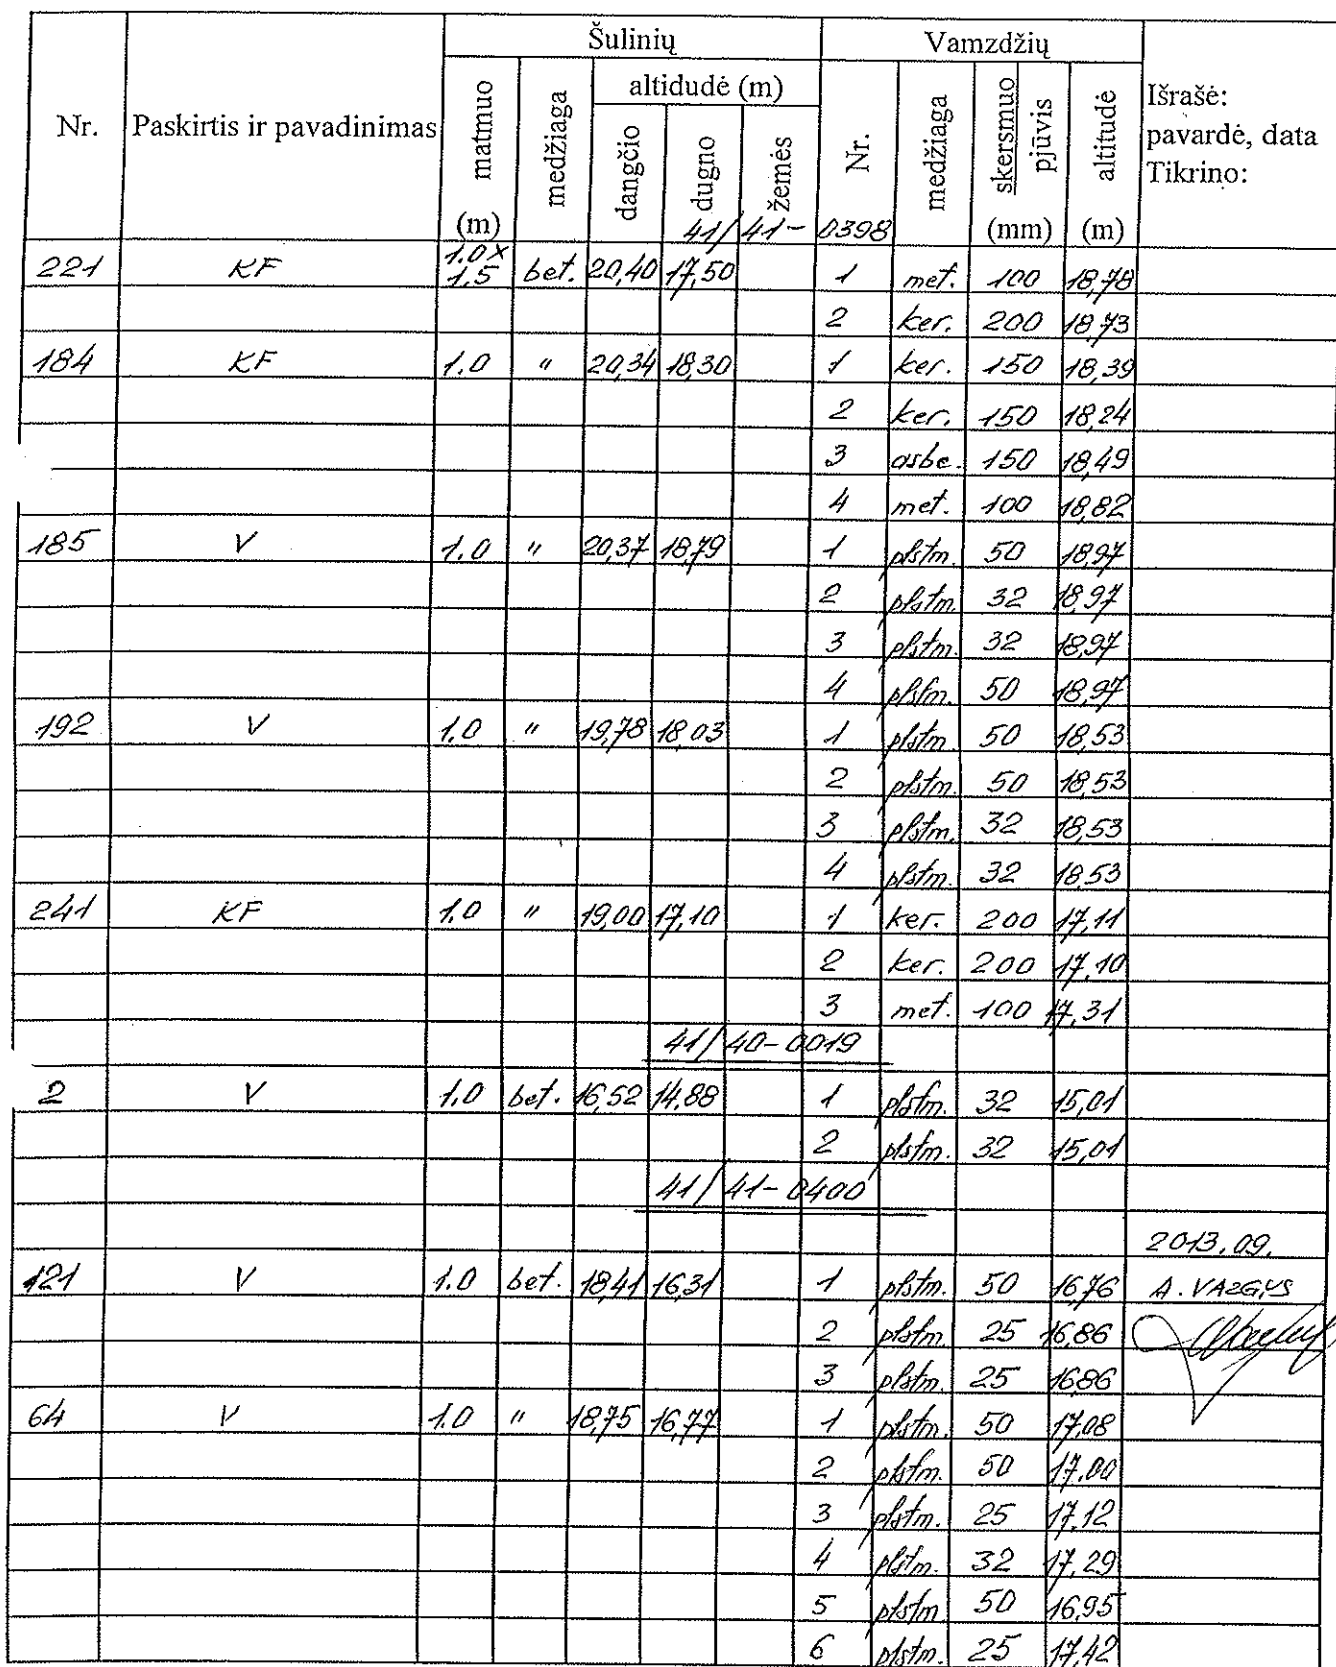 Šulinių Vamzdžių
altidudė (m)
Nr. Paskirtis ir pavadinimas matmuo (m) medžiaga dangčio dugno žemės Nr. medžiaga skersmuo pjūvis (mm) altitudė (m) Išrašė: pavardė, data Tikrino:
41/41-0398
221 KF 1.0x1.5 bet. 20,40 17,50 1 met. 100 18,78
2 ker. 200 18,73
184 KF 1.0 " 20,34 18,30 1 ker. 150 18,39
2 ker. 150 18,24
3 asbc. 150 18,49
4 met. 100 18,82
185 V 1.0 " 20,37 18,79 1 plstm. 50 18,97
2 plstm. 32 18,97
3 plstm. 32 18,97
4 plstm. 50 18,97
192 V 1.0 " 19,78 18,03 1 plstm. 50 18,53
2 plstm. 50 18,53
3 plstm. 32 18,53
4 plstm. 32 18,53
241 KF 1.0 " 19,00 17,10 1 ker. 200 17,11
2 ker. 200 17,10
3 met. 100 17,31
41/40-0019
2 V 1.0 bet. 16,52 14,88 1 plstm. 32 15,01
2 plstm. 32 15,01
41/41-0400
2013.09.
121 V 1.0 bet. 18,41 16,31 1 plstm. 50 16,76 A. VAZGYS
2 plstm. 25 16,86
3 plstm. 25 16,86
64 V 1.0 " 18,75 16,77 1 plstm. 50 17,08
2 plstm. 50 17,00
3 plstm. 25 17,12
4 plstm. 32 17,29
5 plstm 50 16,95
6 plstm. 25 17,42